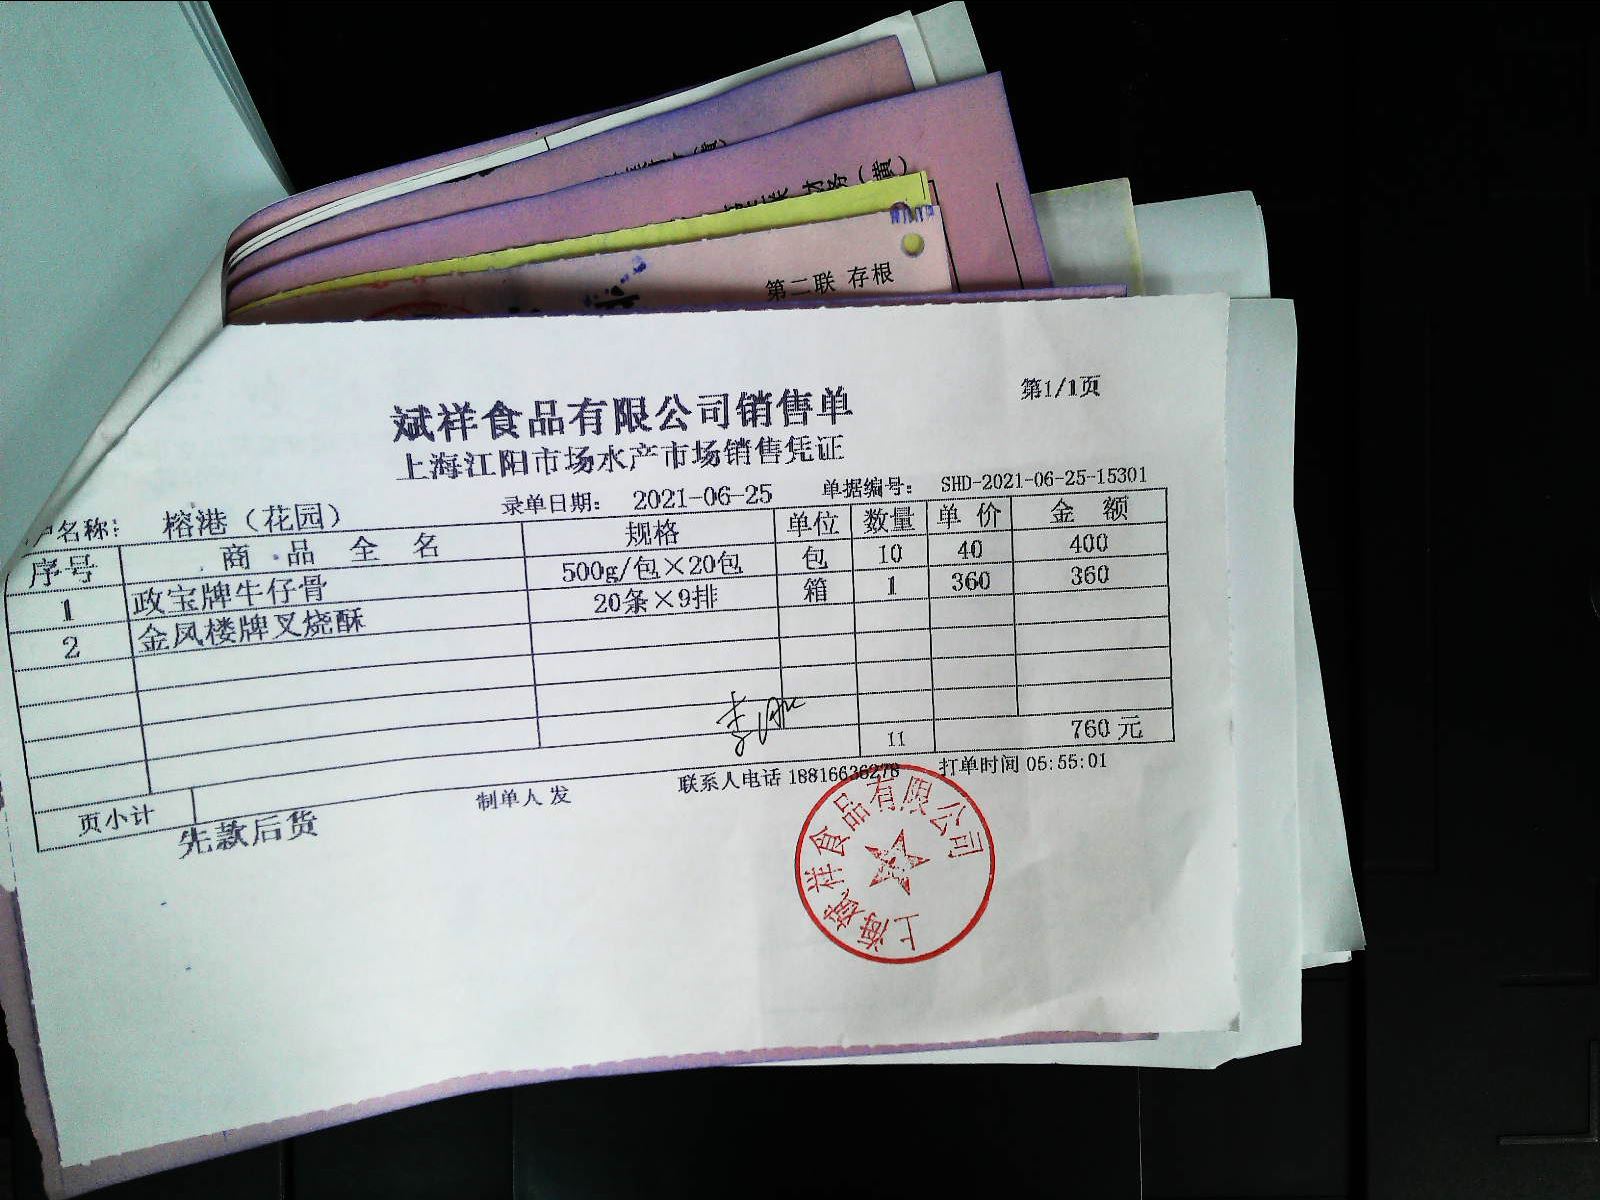 第二联 存根
第1/1页
斌祥食品有限公司销售单
上海江阳市场水产市场销售凭证
户名称： 榕港（花园） 录单日期： 2021-06-25 单据编号： SHD-2021-06-25-15301
序号 商品全名 规格 单位 数量 单价 金额
1 政宝牌牛仔骨 500g/包×20包 包 10 40 400
2 金凤楼牌叉烧酥 20条×9排 箱 1 360 360
页小计 11 760元
先款后货 制单人 发 联系人电话 18816636278 打单时间 05:55:01
上海斌祥食品有限公司